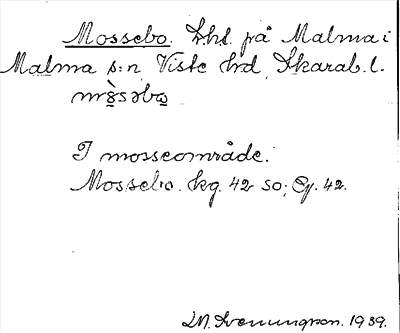 Mossebo. Lht. på Malma i
Malma s:n, Viste hd, Skarab. l.
I mosseområde.
Mossebo. kg. 42 so; Eg. 42.
M. Svenungsson. 1939.